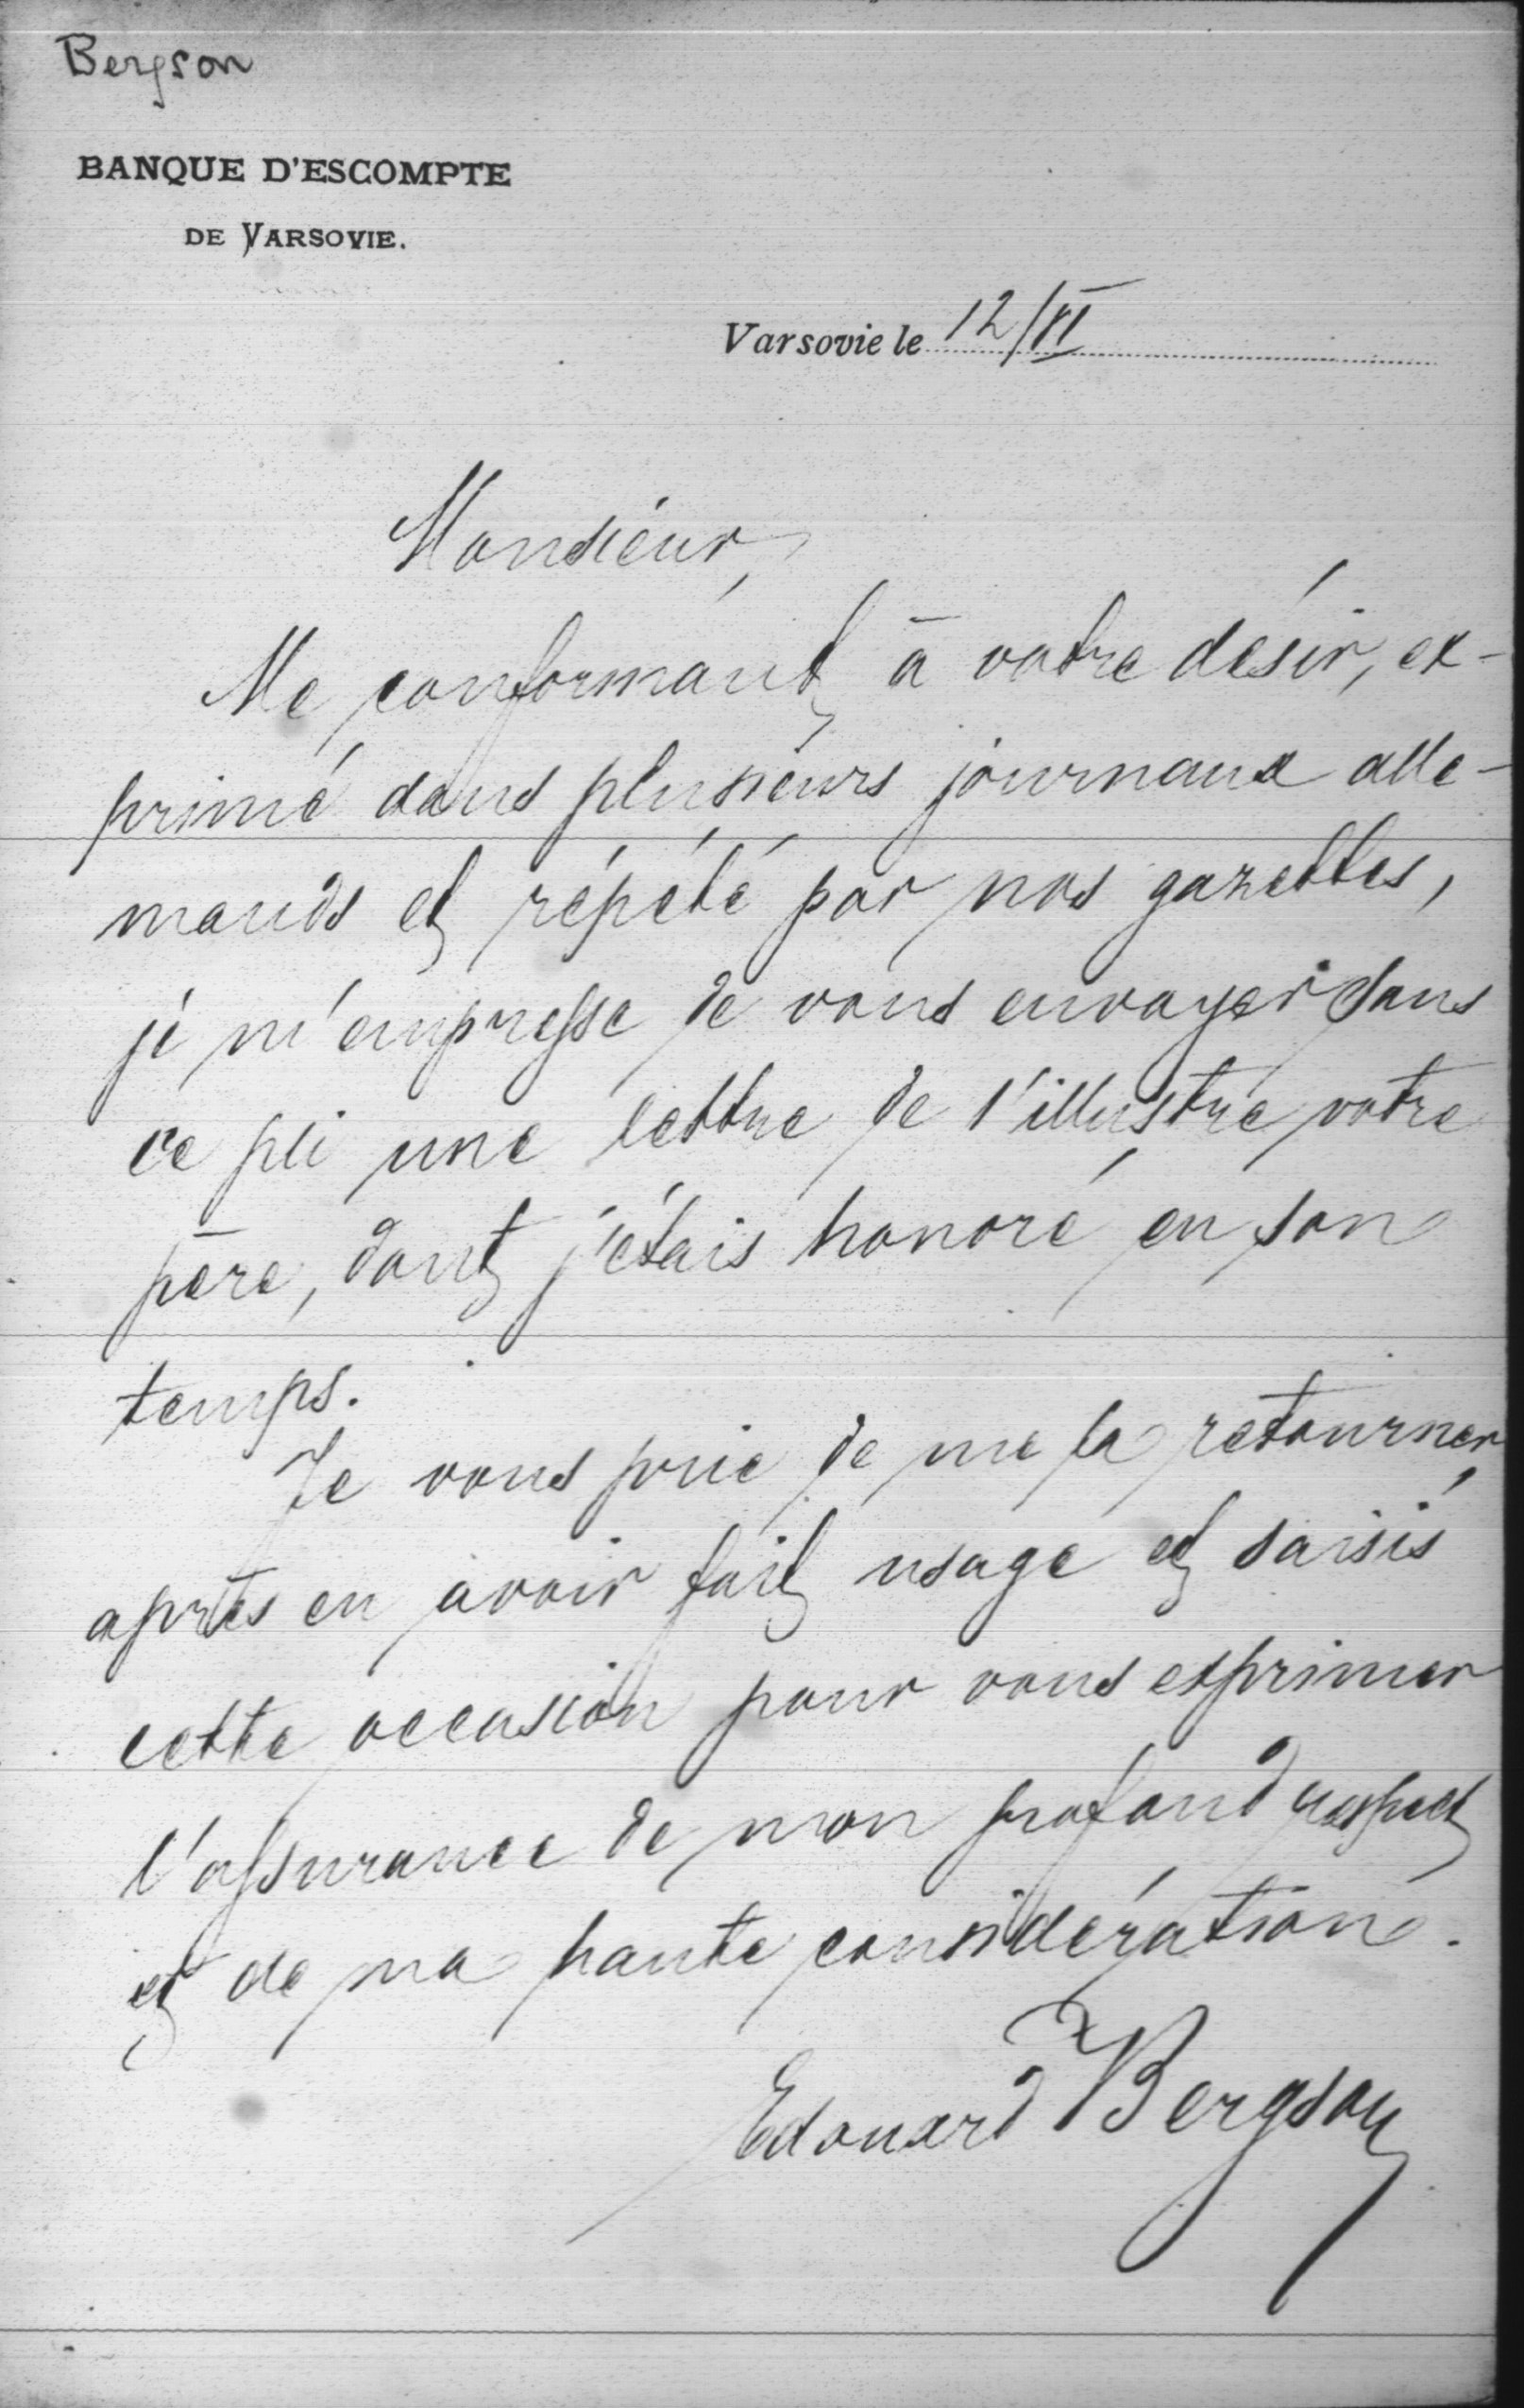 Bergson
BANQUE D'ESCOMPTE
DE VARSOVIE.
Varsovie le 12/VI
Monsieur,
Me conformant à votre désir, ex-
primé dans plusieurs journaux alle-
mands et répété par nos gazettes,
je m'empresse de vous envoyer dans
ce pli une lettre de l'illustre votre
père, dont j'étais honoré en son
temps.
Je vous prie de me la retourner,
après en avoir fait usage et saisis
cette occasion pour vous exprimer
l'assurance de mon profond respect
et de ma haute considération.
Edouard Bergson